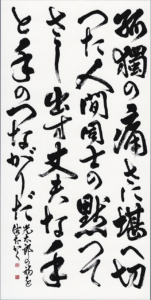 孤獨の痛さに堪へ切
つた人間同士の黙つて
さし出す丈夫な手
と手のつながりだ
光太郎の詩を
かく